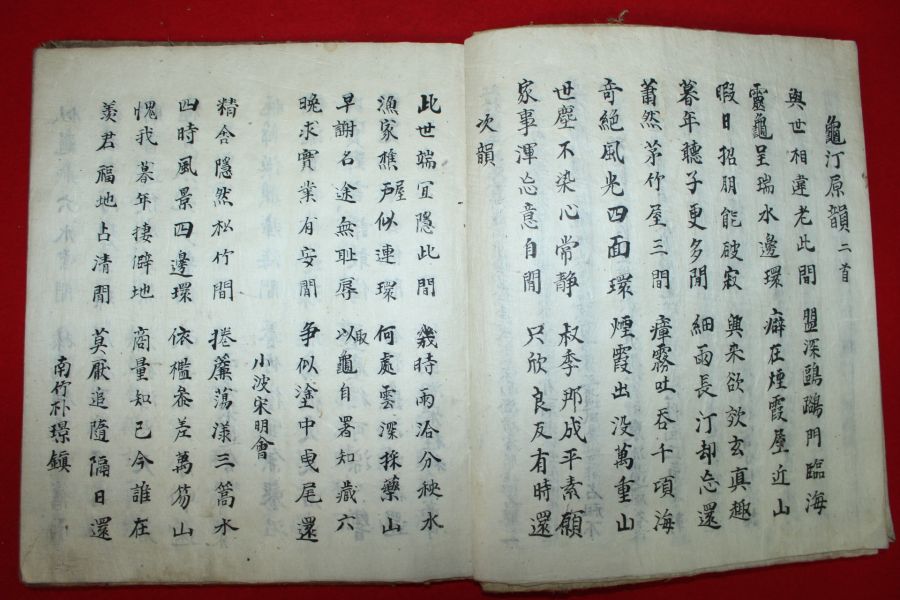 龜汀原韻 二首
與世相違老此間 盟深鷗鷺門臨海
靈龜呈瑞水邊環 癖在煙霞屋近山
暇日招朋能破寂 興來欲欸玄眞趣
暮年聽子更多閒 細雨長汀却忘還
蕭然茅竹屋三間 瘴霧吐呑千項海
奇絶風光四面環 煙霞出没萬重山
世塵不染心常靜 叔季那成平素願
家事渾忘意自閒 只欣良友有時還
次韻
此世端宜隱此間 幾時雨洽分秧水
漁家樵戶屋似連環 何處雲深採藥山
早謝名途無耻辱 取以龜自署知藏六
晩求實業有安閒 爭似塗中曳尾還
小波宋明會
精舍隱然松竹間 捲簾蕩漾三篙水
四時風景四邊環 依檻叅差萬笏山
愧我暮年捿僻地 商量知己今誰在
羡君福地占清閒 莫厭追隨隔日還
南竹朴璟鎭